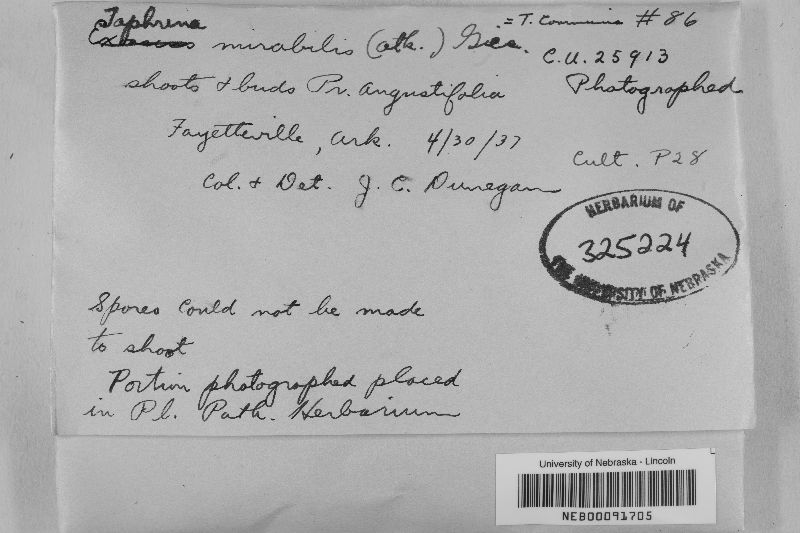 Taphrina = T. Communis # 86
Exoascus mirabilis (Atk.) Gies. C.U. 25913
shoots & buds Pr. angustifolia Photographed
Fayetteville, Ark. 4/30/37
Cult. P28
Col. & Det. J. C. Dunegan
HERBARIUM OF
325224
THE UNIVERSITY OF NEBRASKA
Spores could not be made
to shoot
Portion photographed placed
in Pl. Path. Herbarium
University of Nebraska - Lincoln
NEB00091705